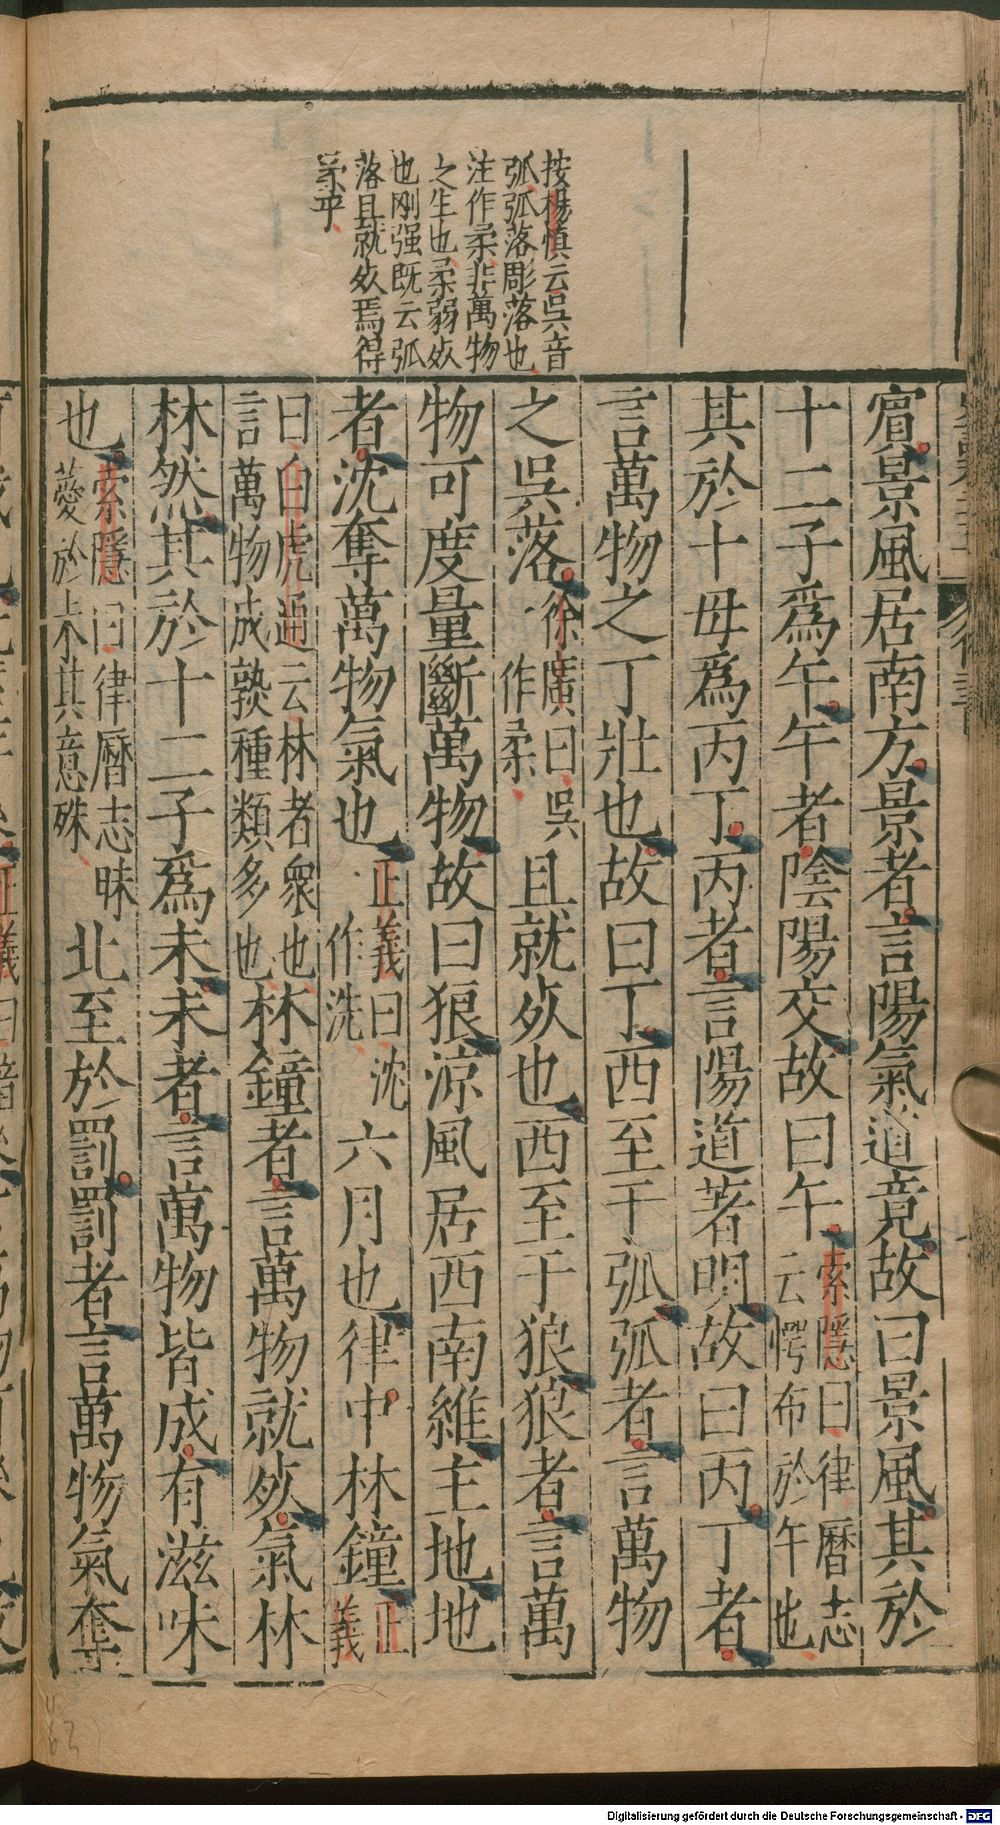 按楊慎云吳音
弧弧落彫落也
注作柔非萬物
之生也柔弱㱦
也剛强既云弧
落且就㱦焉得
柔乎
賔景風居南方景者言陽氣道竟故曰景風其於
十二子爲午午者陰陽交故曰午索隱曰律曆志云愕布於午也
其於十母爲丙丁丙者言陽道著明故曰丙丁者
言萬物之丁壯也故曰丁西至于弧弧者言萬物
之吳落徐廣曰吳作柔且就㱦也西至于狼狼者言萬
物可度量斷萬物故曰狼涼風居西南維主地地
者沈奪萬物氣也正義曰沈作洗六月也律中林鐘正義
曰白虎通云林者衆也言萬物成孰種類多也林鐘者言萬物就㱦氣林
林然其於十二子爲未未者言萬物皆成有滋味
也索隱曰律曆志昧薆於未其意殊北至於罰罰者言萬物氣奪
Digitalisierung gefördert durch die Deutsche Forschungsgemeinschaft - DFG